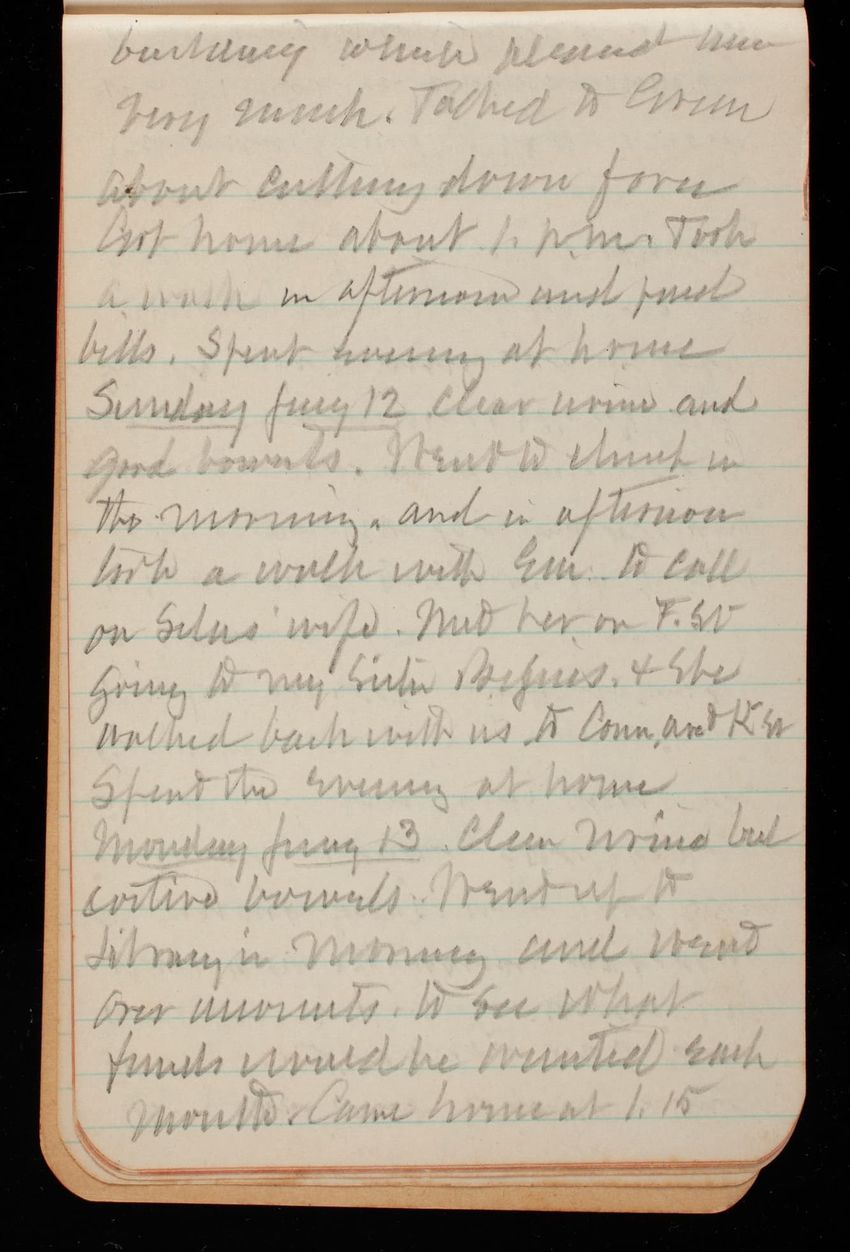 building which pleased him
very much. Talked to Green
about cutting down force
Got home about 1. p.m. Took
a walk in afternoon and paid
bills. Spent evening at home
Sunday Jany 12 clear urine and
good bowels. Went to church in
the morning. and in afternoon
took a walk with Em. to call
on Silas' wife. Met her on F. St
going to my Sister & She
walked back with us to Conn, and K St
Spent the evening at home
Monday Jany 13. Clear Urine but
costive bowels. Went up to
Library in Morning and went
over accounts. to see what
funds would be wanted each
month. Came home at 1.15